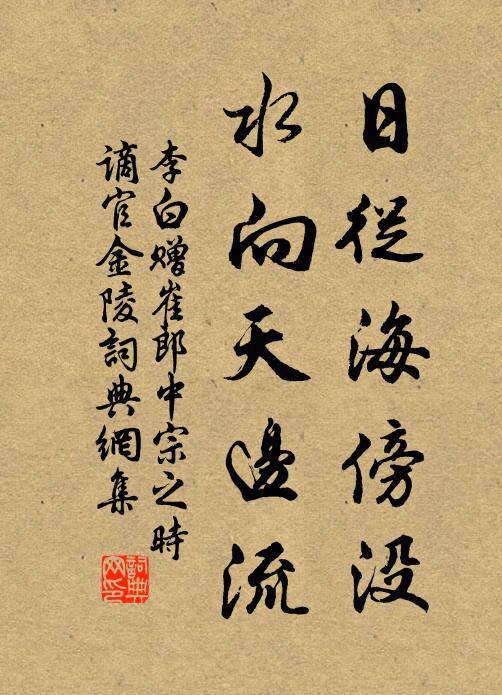 日從海傍没
水向天邊流
李白贈崔郎中宗之時
謫官金陵詞典網集
詞典
网印